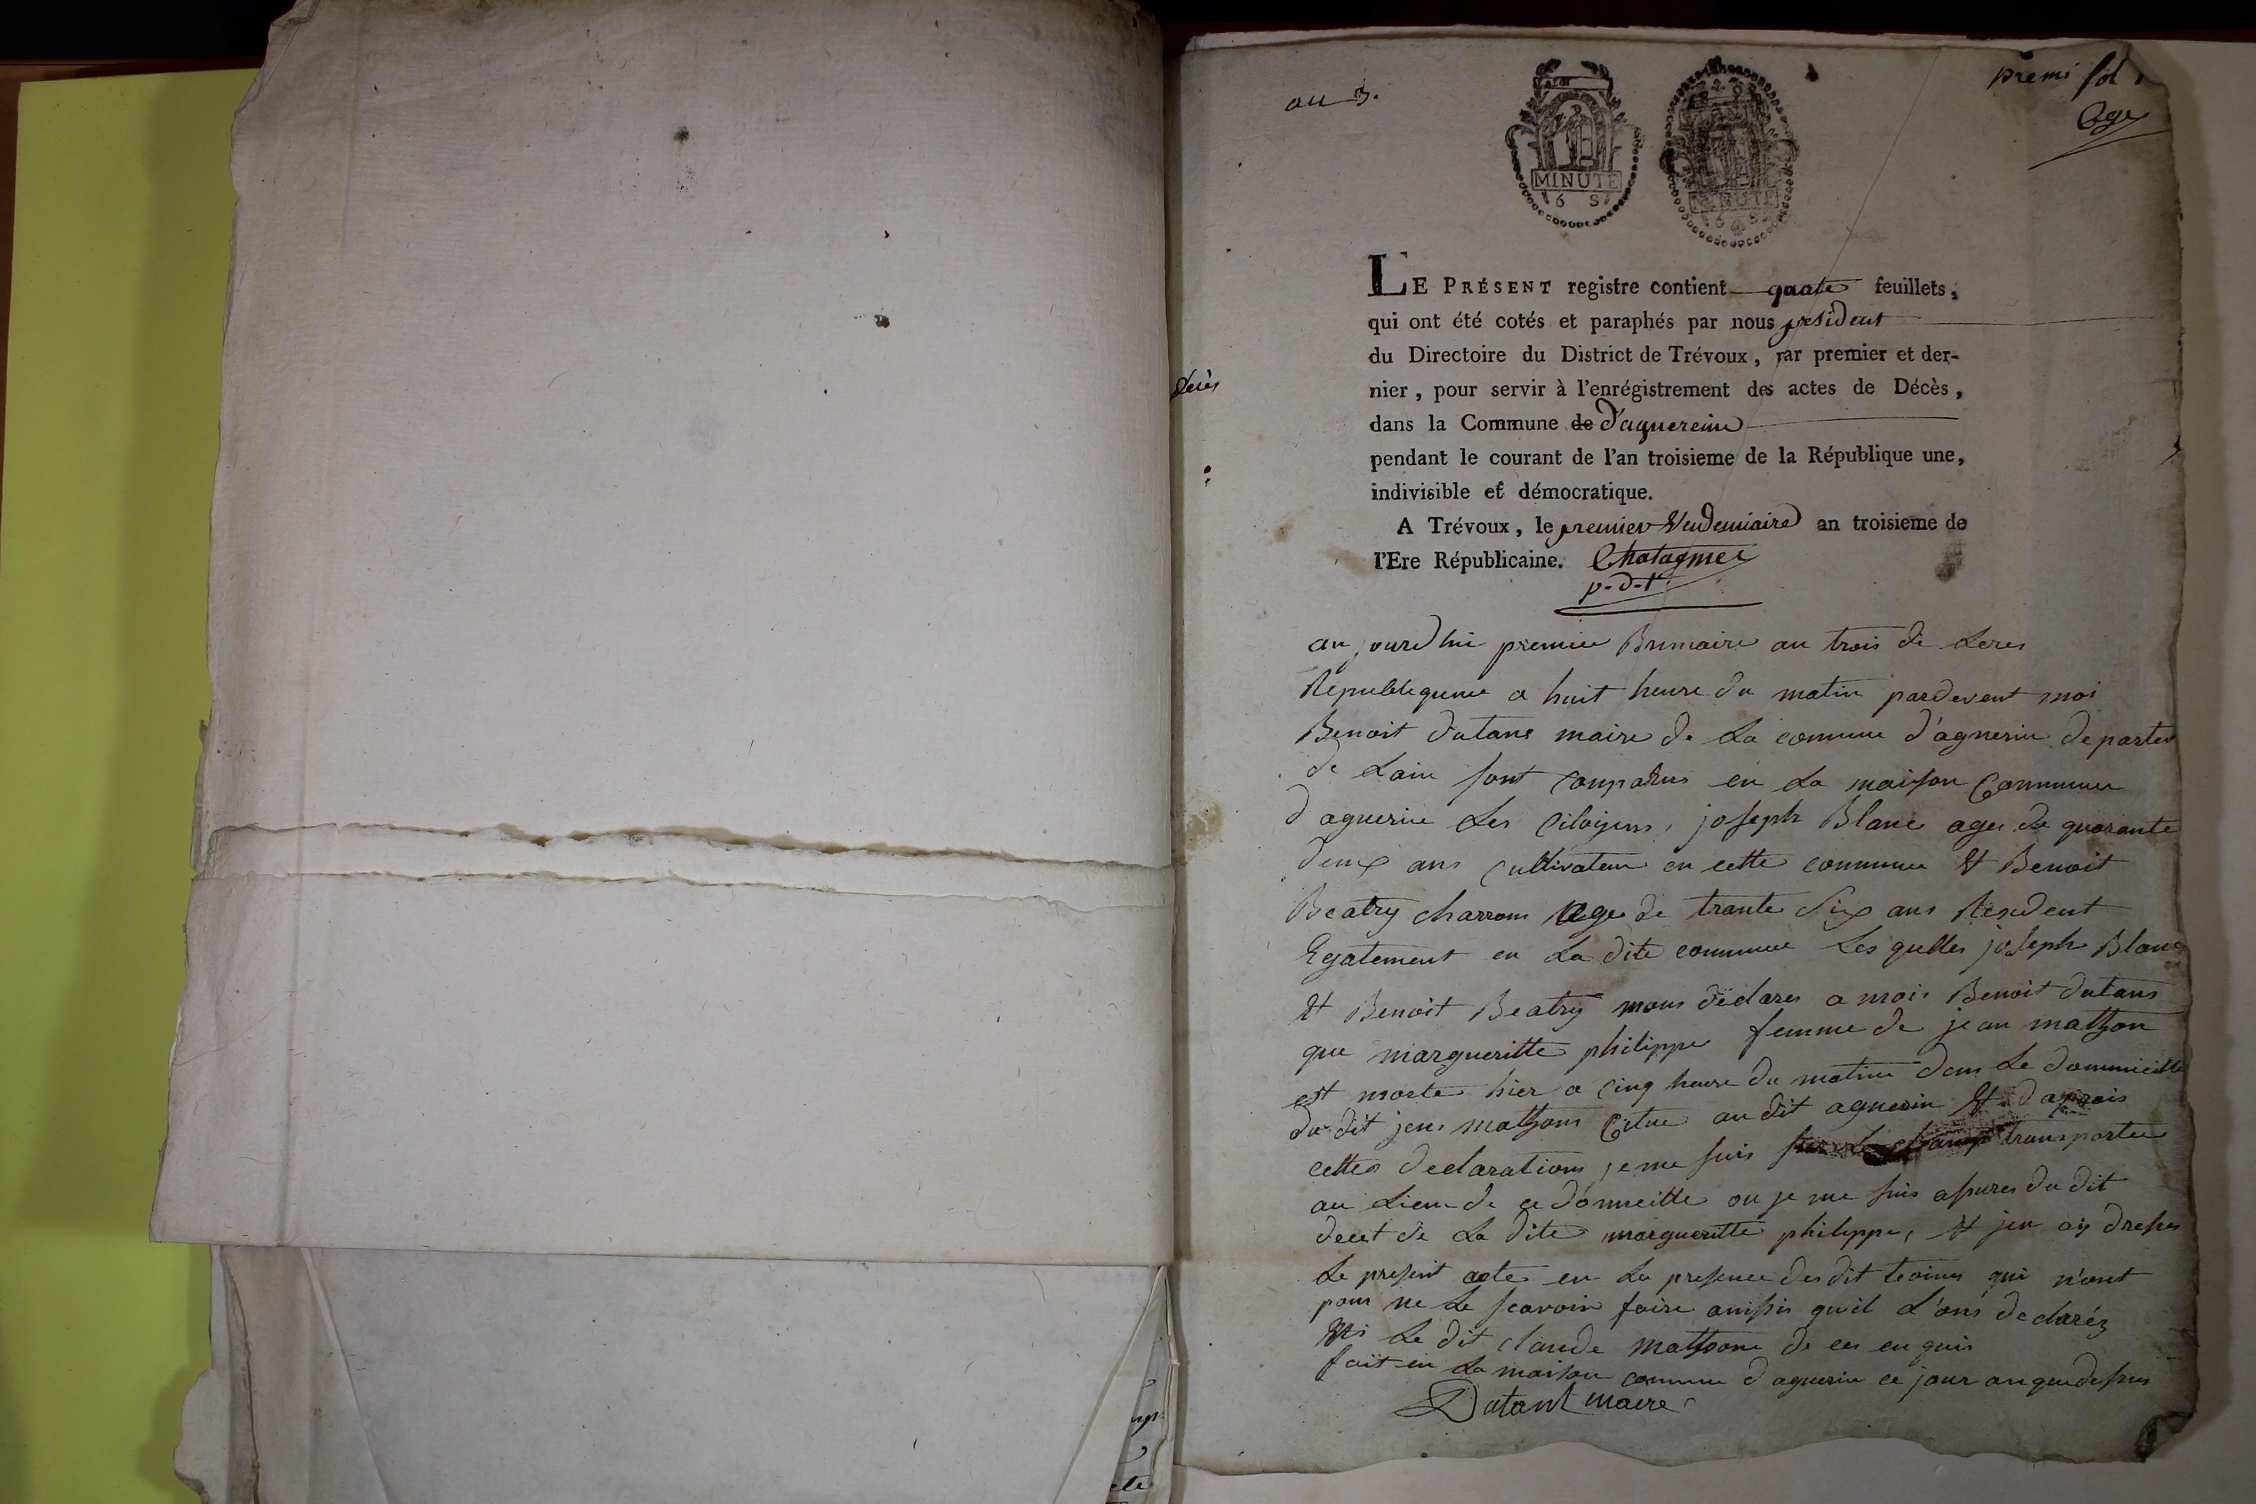 an 3.
premi fol
MINUTE
6 S
MINUTE
6 S
Décès
LE PRÉSENT registre contient quatre feuillets,
qui ont été cotés et paraphés par nous président
du Directoire du District de Trévoux, par premier et der-
nier, pour servir à l'enrégistrement des actes de Décès,
dans la Commune de d'aguereins
pendant le courant de l'an troisieme de la République une,
indivisible et démocratique.
A Trévoux, le premier Vendemiaire an troisieme de
l'Ere Républicaine. Chatagnier
p.d.t.
aujourdhui premier Brumaire an trois de Leres
Republiquenne a huit heure du matin pardevent moi
Benoit dutans maire de La commune d'aguerin departe
de Lain sont comparus en La maison Commune
d'aguerin Les Citoyens, joseph Blanc agee de quarante
deux ans cultivateur en cette commune Et Benoit
Beatry charrons age de trante six ans Resident
Egalement en La dite commune Les quelles joseph Blanc
Et Benoit Beatry mons declares a moi Benoit dutans
que margueritte philippe femme de jean mathon
est morte hier a cinq heure du matin dans Le dommicille
du dit jens mathons Citue au dit aguerin Et d'aprais
cettes declarations je me suis transportee
au Lieu de ce domicille ou je me suis assures du dit
decet de La dite margueritte philippe, Et jen ay dresses
Le present acte en La presence des dit temoins qui n'ont
pour ne Le scavoir faire ainssis qu'il L'ons declaréz
Le dit claude mathons de ces enquis
fait en La maison commune d'aguerin ce jour an que dessus
Dutant maire